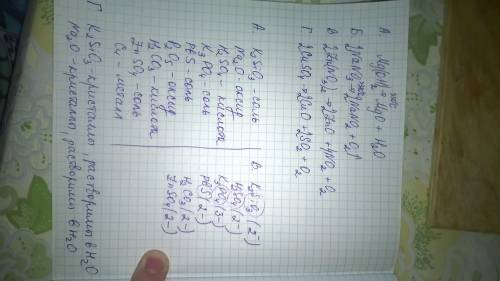 А. Mg(OH)2 → MgO + H2O
Б. 2NaNO3 → 2NaNO2 + O2↑
В 2Zn(NO3)2 → 2ZnO + 4NO2 + O2
Г 2CuSO4 → 2CuO + 2SO2 + O2
А. K2SiO3 - соль
Na2O - оксид
H2SO4 - кислота
K3PO4 соль
P2O5 - оксид
PbS - соль
H2CO3 - кислота
ZnSO4 - соль
Cu - металл
K2SiO3 (2-)
H2SO4 (2-)
K3PO4 (3-)
PbS (2-)
H2CO3 (2-)
ZnSO4 (2-)
Г K2SiO3 - кристаллы растворимы в H2O
Na2O - кристалло, растворимы в H2O